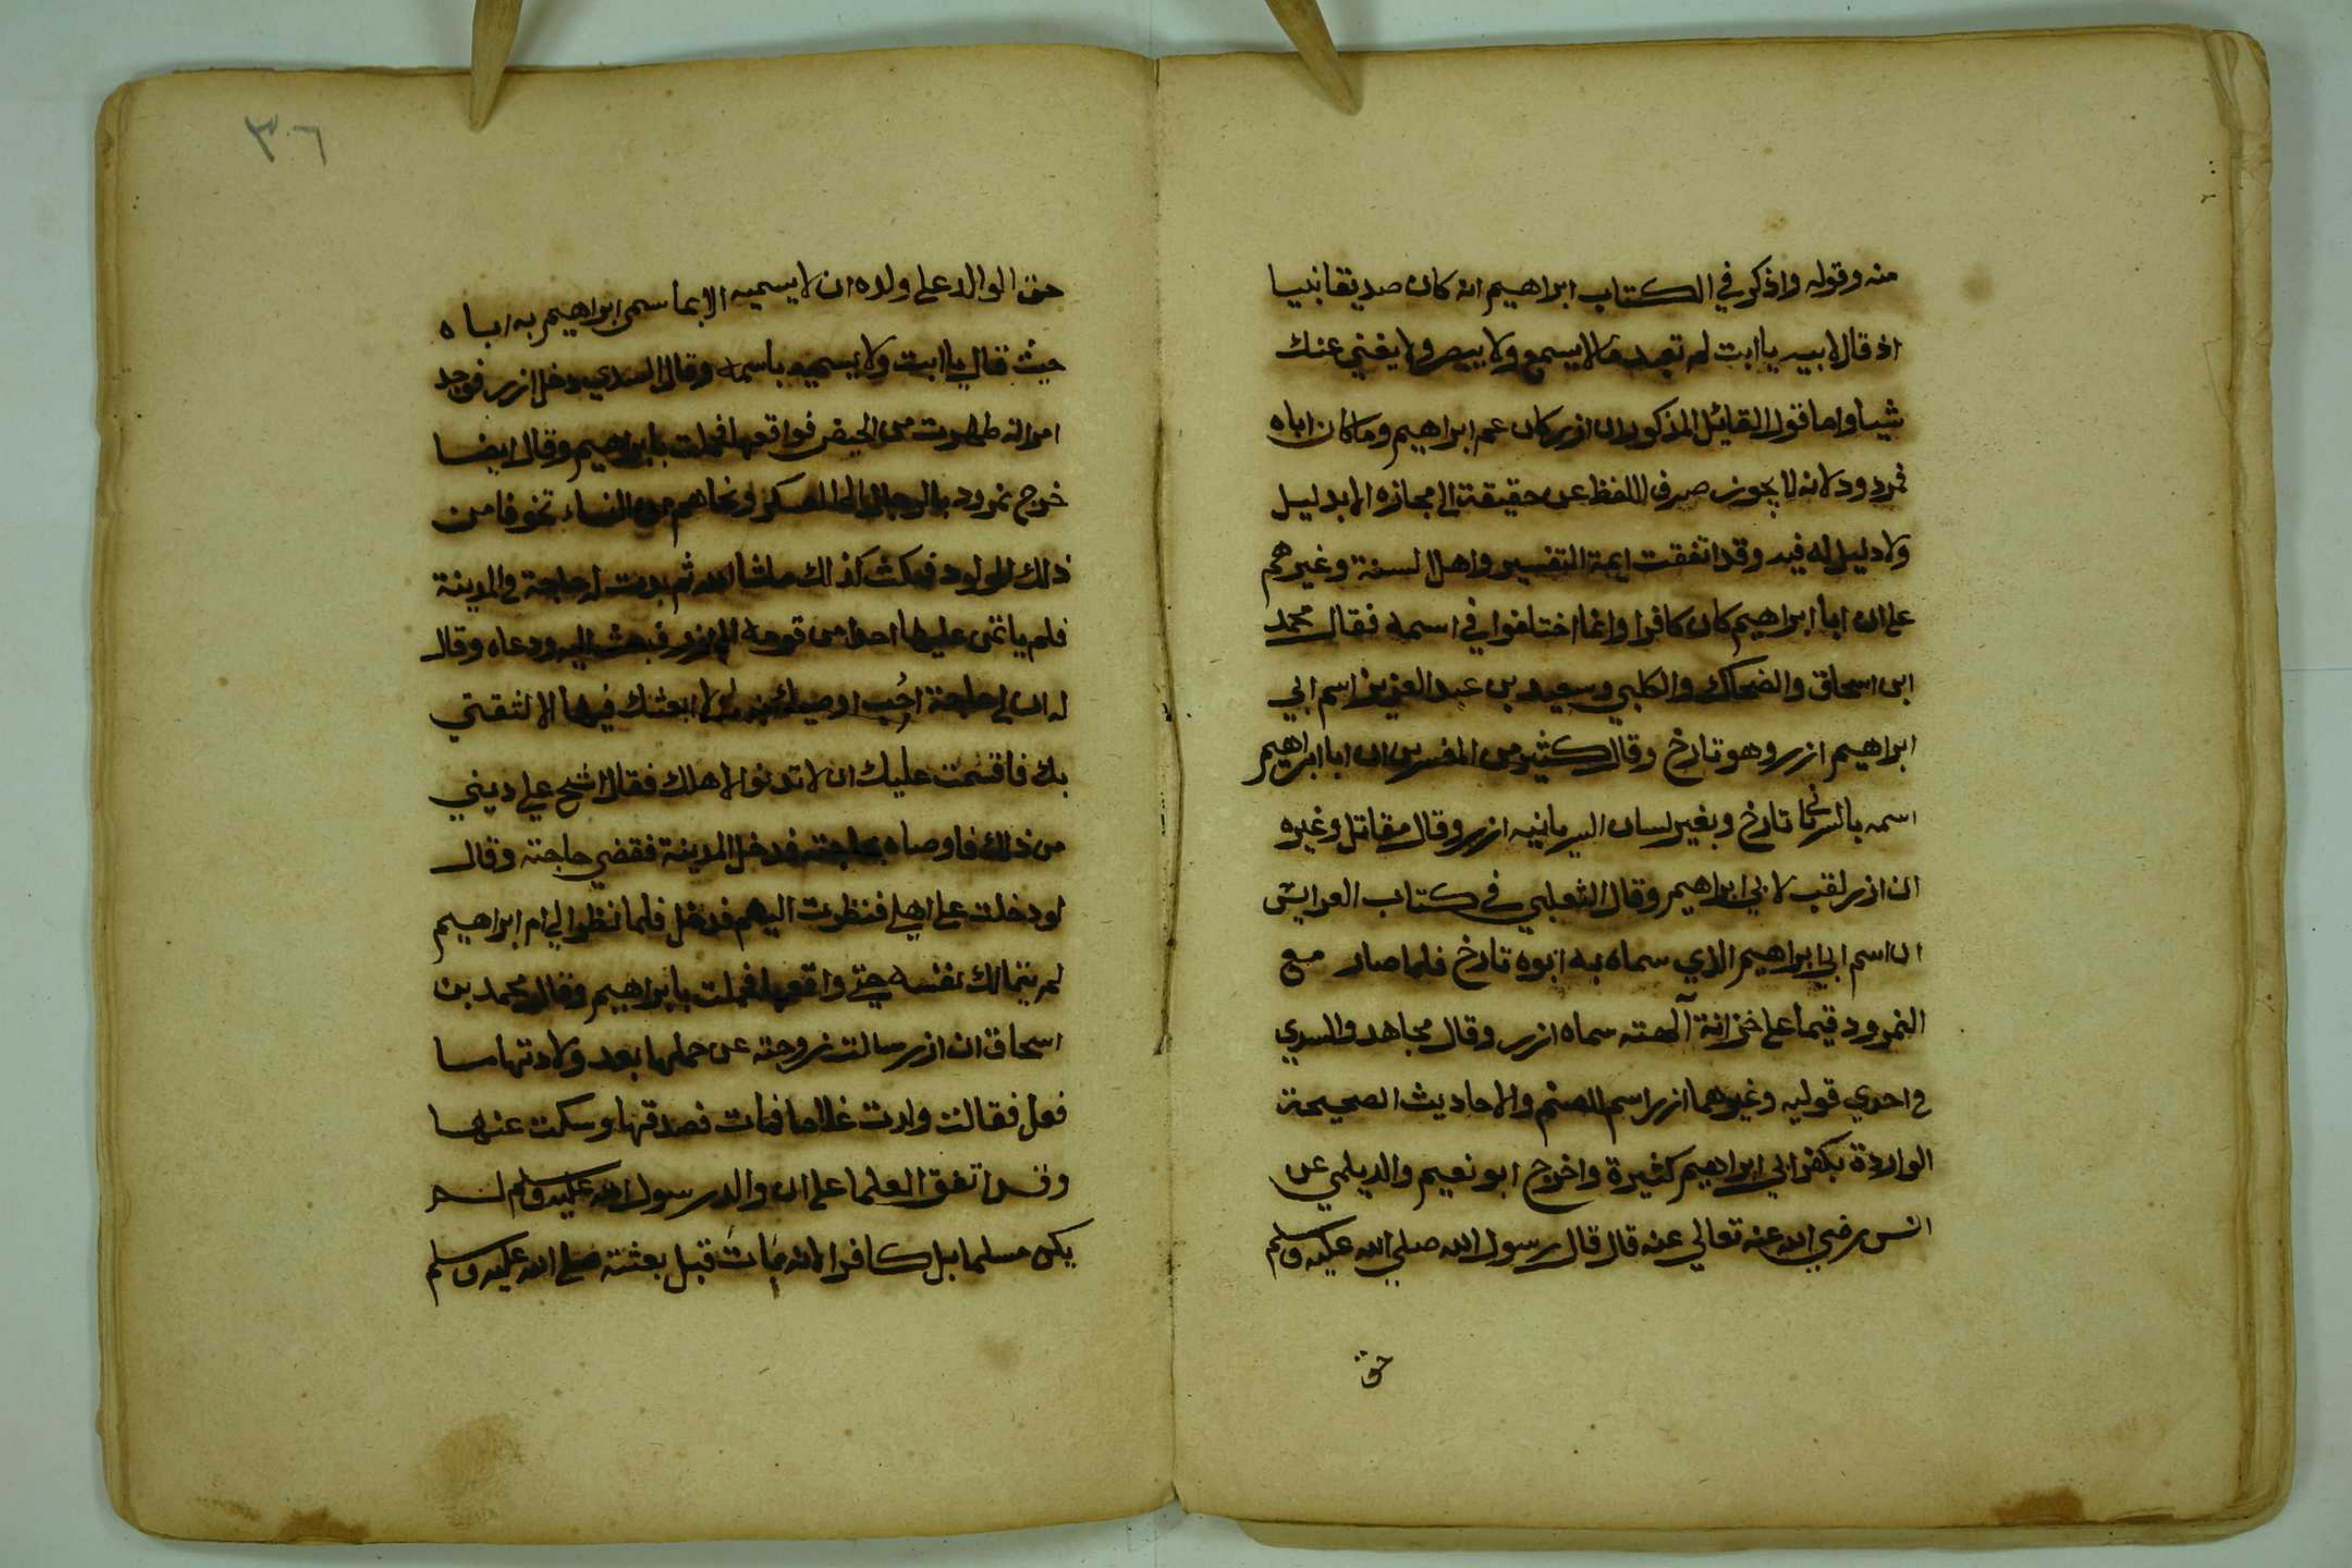 منه وقوله واذكر في الكتاب ابراهيم انه كان صديقا نبيا
اذ قال لابيه يا ابت لم تعبد مالا يسمع ولا يبصر ولا يغني عنك
شيأ واما قول القائل المذكور ان ازر كان عم ابراهيم وما كان اباه
فمردود لانه لا يجوز صرف اللفظ عن حقيقة الي مجازه الا بدليل
ولا دليل له فيه وقد اتفقت ايمة التفسير واهل السنة وغيرهم
علي ان ابا ابراهيم كان كافرا وانما اختلفوا في اسمه فقال محمد
ابن اسحاق والضحاك والكلبي وسعيد بن عبد العزيز اسم ابي
ابراهيم ازر وهو تارخ وقال كثير من المفسرين ان ابا ابراهيم
اسمه تارخ وبغير لسان السريانيه ازر وقال مقاتل وغيره
ان ازر لقب لابي ابراهيم وقال الثعلبي في كتاب العرايش
ان اسم ابي ابراهيم الذي سماه به ابوه تارخ فلما صار مع
النمرود قيما علي خزانة آلهته سماه ازر وقال مجاهد والسدي
في احدي قوليه وغيرهما ازر اسم الصنم والاحاديث الصحيحة
الواردة بكفر ابي ابراهيم كثيرة واخرج ابو نعيم والديلمي عن
انس رضي الله عنه تعالي عنه قال قال رسول الله صلي الله عليه وسلم
حق
٣٦
حق الوالد علي ولده ان لا يسميه الا بما سمي ابراهيم به اباه
حيث قال يا ابت ولا يسميه باسمه وقال السدي دخل ازر فوجد
امراته طهرت من الحيض فواقعها فحملت بابراهيم وقال ايضا
خرج نمرود بالرجال الي العسكر ونحاهم من النساء تخوفا من
ذلك المولود فمكث كذلك ماشا الله ثم بدت له حاجة في المدينة
فلم ياتمن عليها احدا من قومه الا ازر فبعث اليه ودعاه وقال
له ان لي حاجة احب اوصيك بها ولا ابعثك فيها الا لثقتي
بك فاقسمت عليك ان لا تدنوا لاهلك فقال اشح علي ديني
من ذلك فاوصاه بحاجته فدخل المدينة فقضي حاجته وقال
لو دخلت علي اهلي فنظرت اليهم فدخل فلما نظر الي ام ابراهيم
لم يتمالك نفسه حتي واقعها فحملت بابراهيم وقال محمد بن
اسحاق ان ازر سالت زوجته عن حملها بعد ولادتها ما
فعل فقالت ولدت غلاما فمات فصدقها وسكت عنها
وقد اتفق العلما علي ان والد رسول الله عليه وسلم لم
يكن مسلما بل كافرا لانه مات قبل بعثته صلي الله عليه وسلم